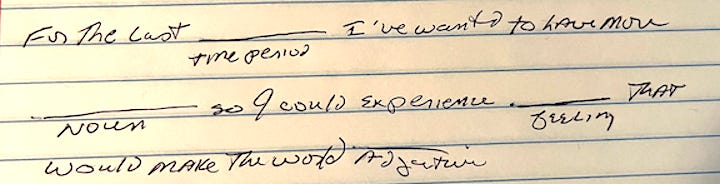 For the last ________ I've wanted to have more
time period
________ so I could experience ________ that
Noun feeling
would make the world Adjective